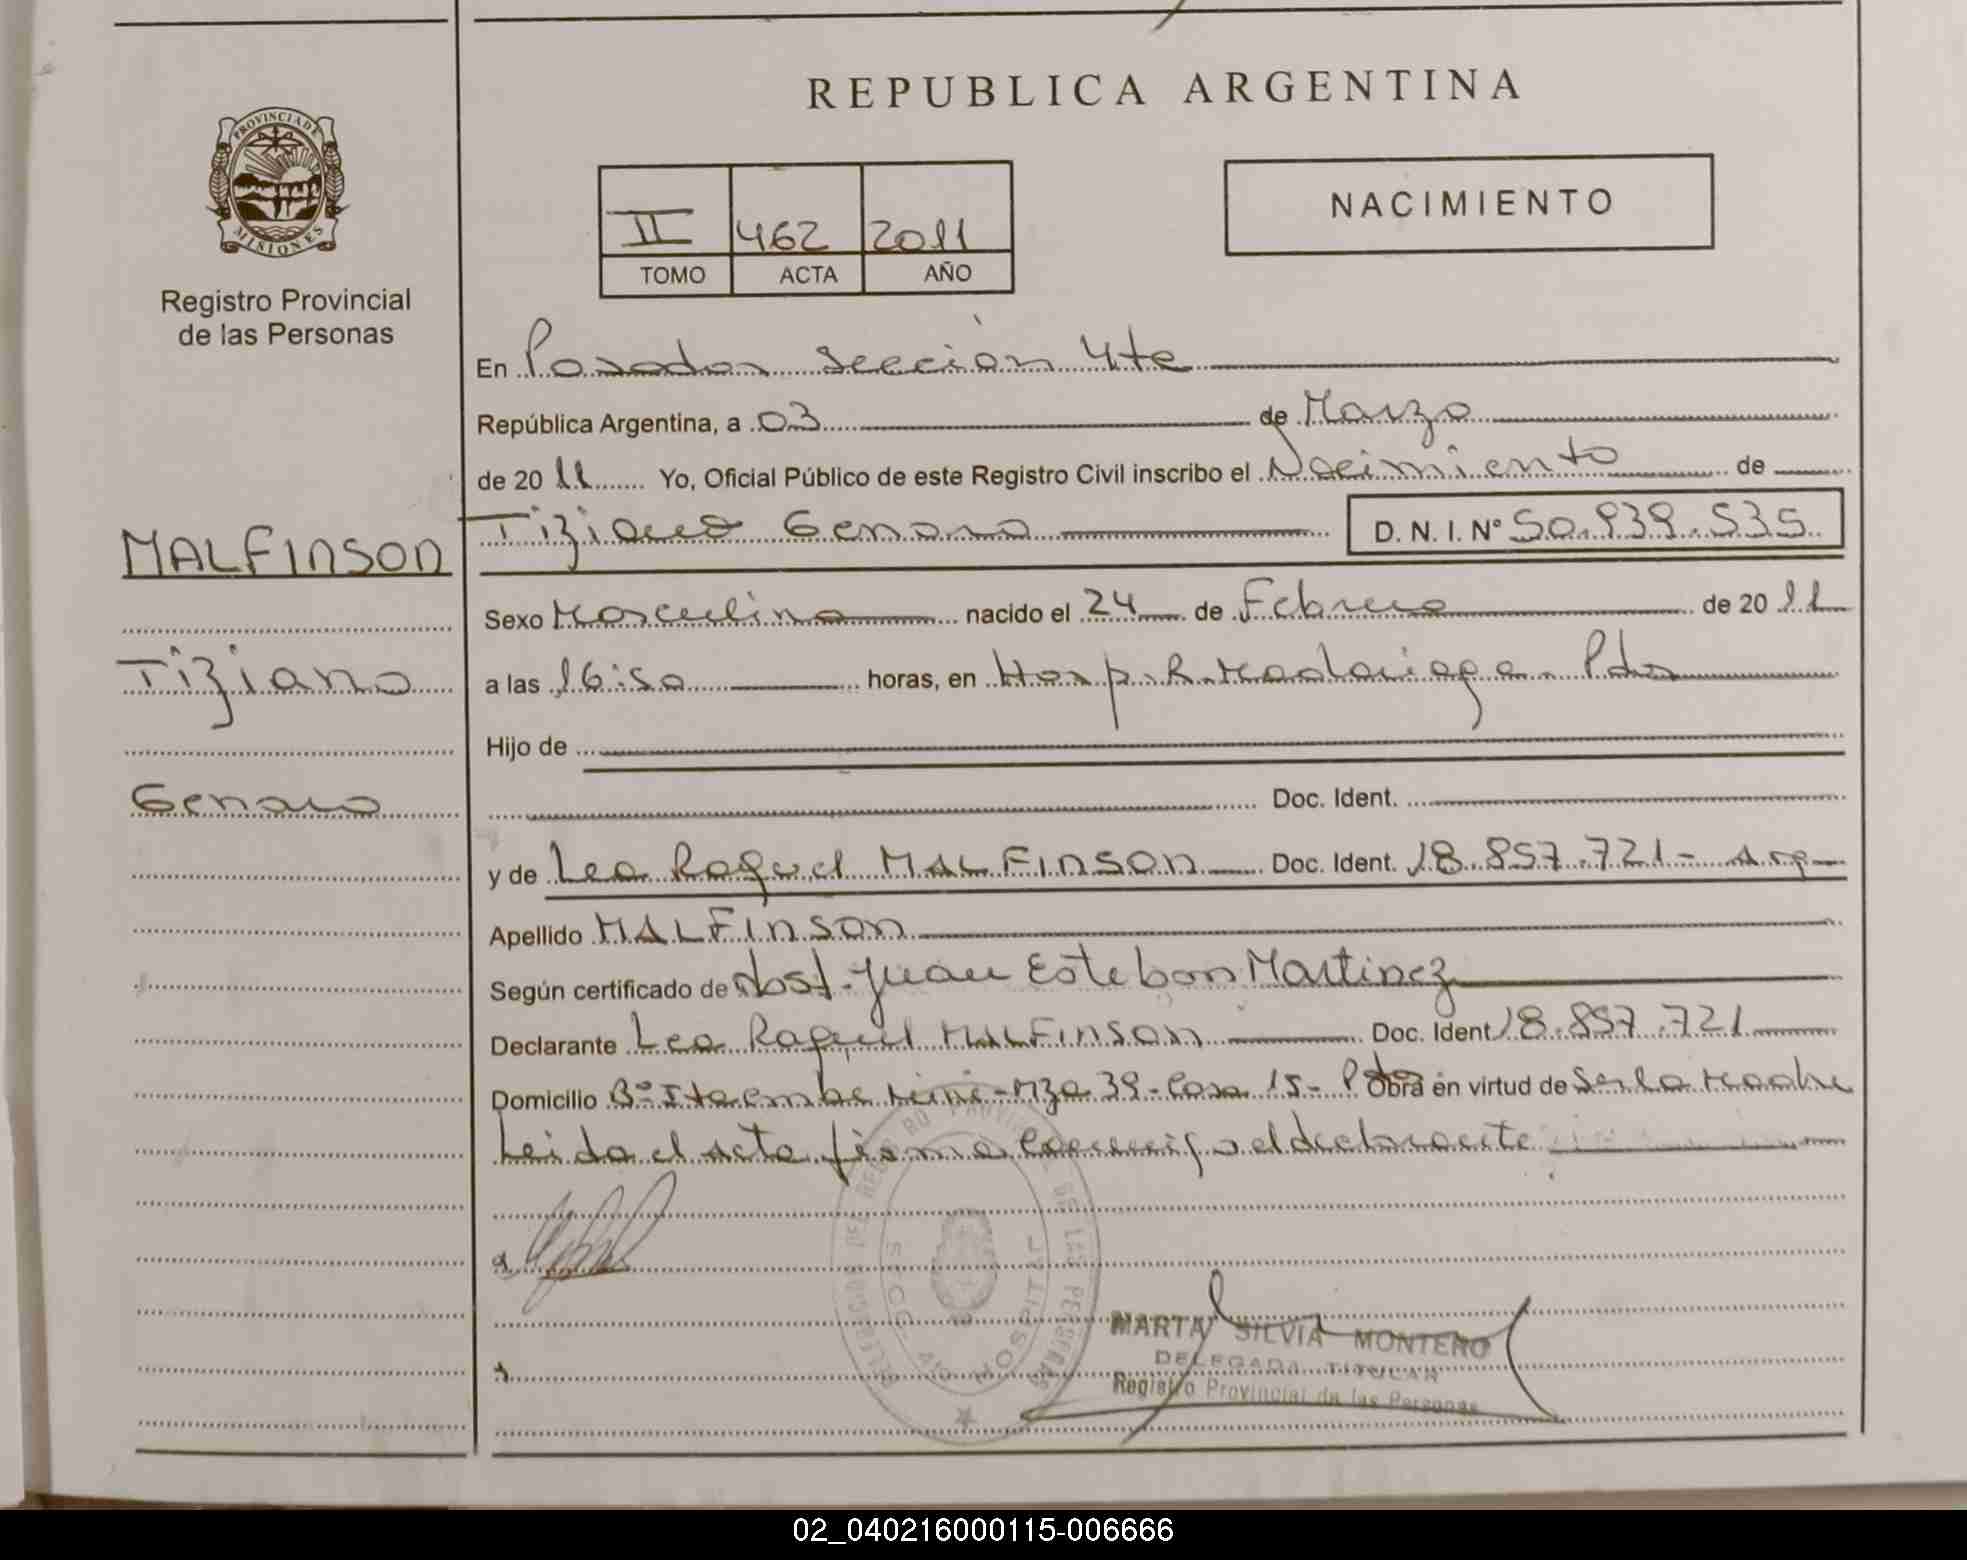 REPUBLICA ARGENTINA
PROVINCIA DE
MISIONES
Registro Provincial
de las Personas
II 462 2011
TOMO ACTA AÑO
NACIMIENTO
En Posadas sección 4ta
República Argentina, a 03 de Marzo
de 2011 Yo, Oficial Público de este Registro Civil inscribo el Nacimiento de
MALFINSON
Tiziano Genaro D. N. I. Nº 50.939.535
Sexo Masculino nacido el 24 de Febrero de 2011
Tiziano
a las 16:50 horas, en Hosp. R. Madariaga Pdas
Hijo de
Genaro
Doc. Ident.
y de Lea Raquel MALFINSON Doc. Ident. 18.857.721- Arg
Apellido MALFINSON
Según certificado de Obst. Juan Esteban Martinez
Declarante Lea Raquel MALFINSON Doc. Ident 18.857.721
Domicilio Bº Itaembe Mini - Mza 39 - Casa 15 - Pdas Obra en virtud de Ser la Madre
Leida el acta firma conmigo el declarante
DELEGACION DEL REGISTRO PROVINCIAL DE LAS PERSONAS
SECC. 4ta HOSPITAL
MARTA SILVIA MONTERO
DELEGADA TITULAR
Registro Provincial de las Personas
02_040216000115-006666